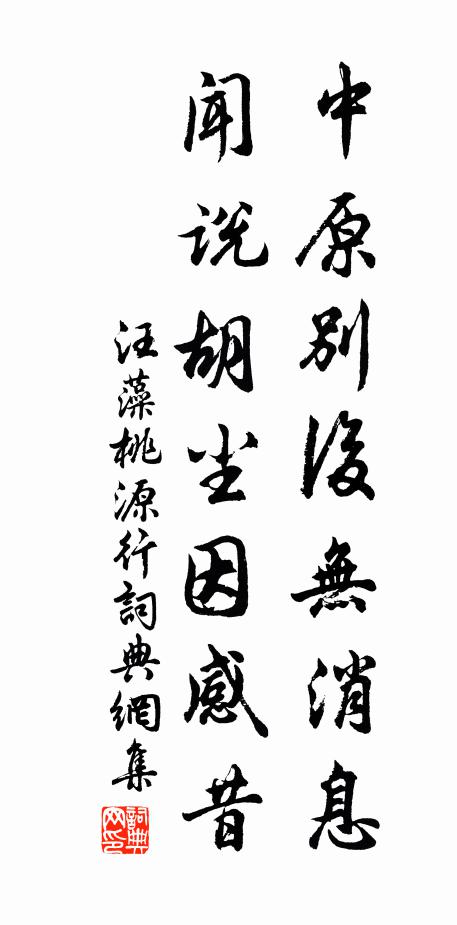 中原别後無消息
闻说胡尘因感昔
汪藻桃源行詞典網集
詞典网印